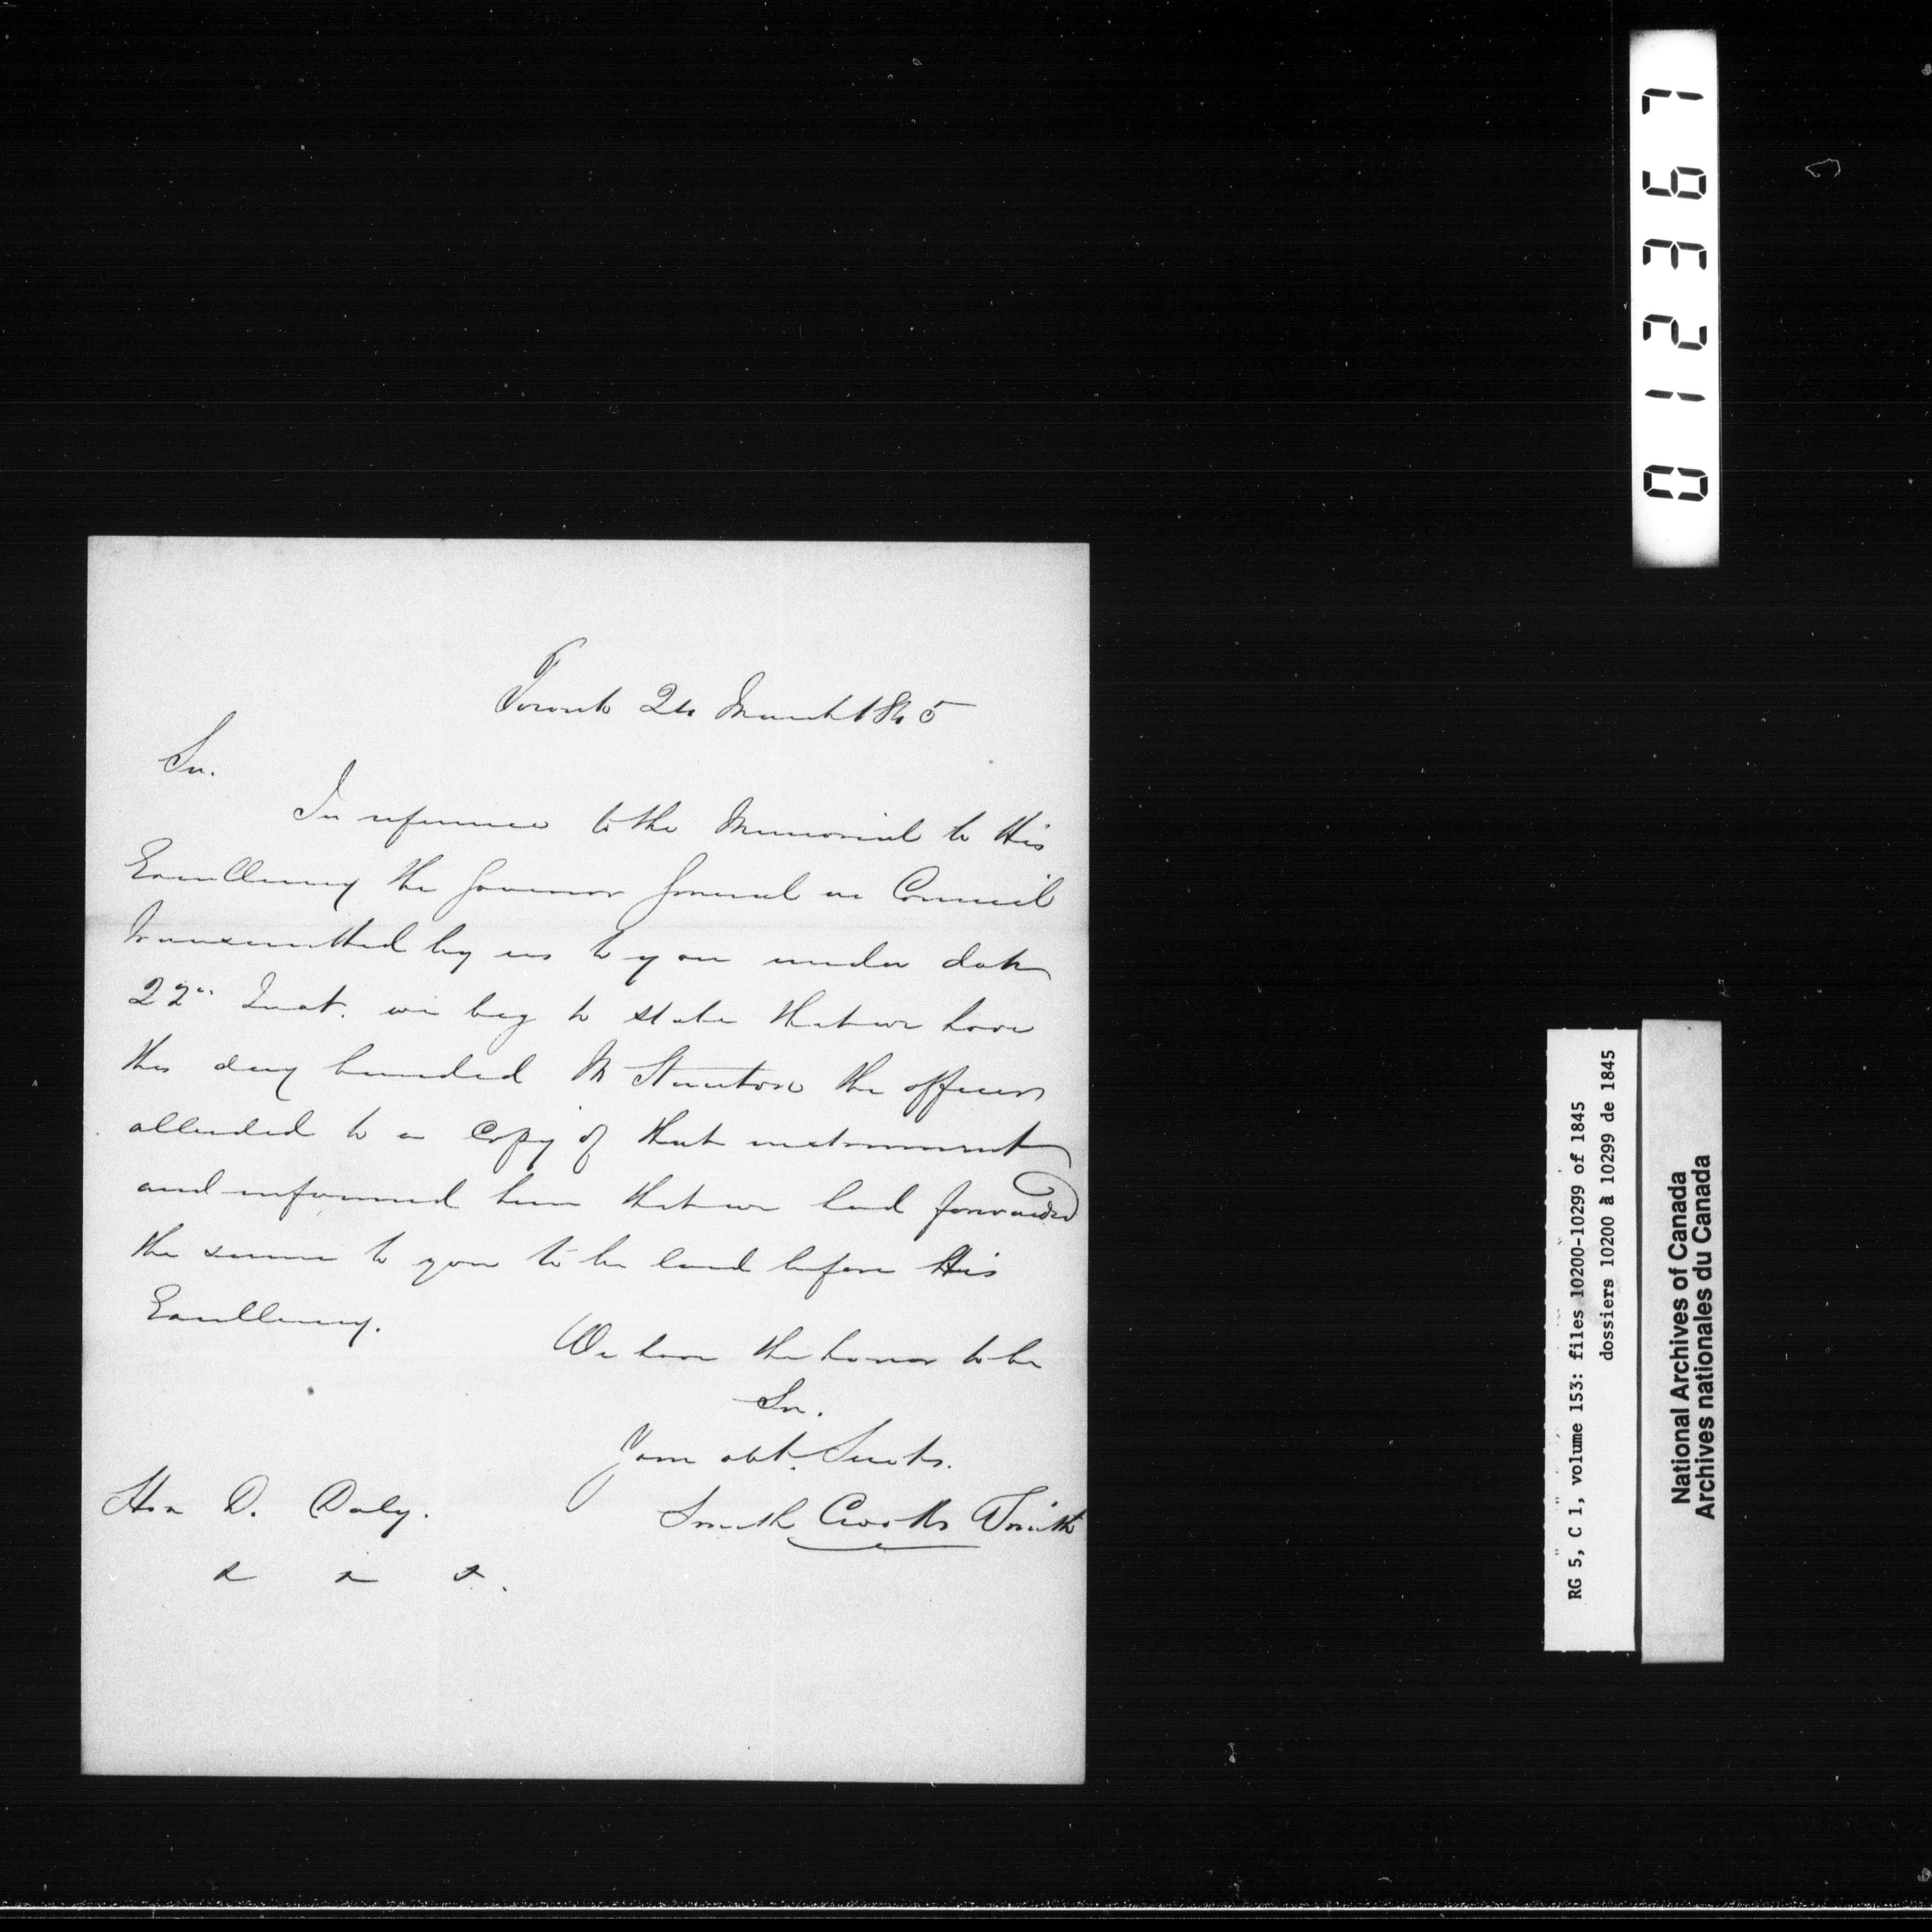 Toronto 24 March 1845
Sir.
In reference to the Memorial to His
Excellency the Governor General in Council
transmitted by us to you under date
22nd Inst. we beg to state that we have
this day handed Mr Stanton the officer
alluded to a Copy of that instrument
and informed him that we had forwarded
the same to you to be laid before His
Excellency.
We have the honor to be
Sir.
Your obt. Servts.
Smith Crooks Smith
Hon D. Daly.
& & &.
012367
RG 5, C 1, volume 153: files 10200-10299 of 1845
dossiers 10200 à 10299 de 1845
National Archives of Canada
Archives nationales du Canada